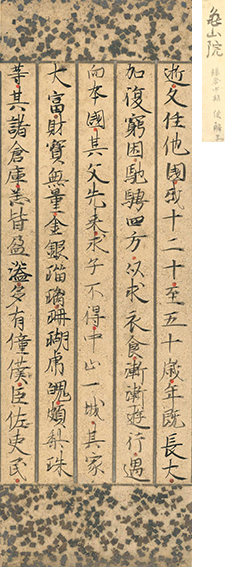 亀山院
逝久住他國或十二十至五十歲年既長大
加復窮困馳騁四方以求衣食漸漸遊行遇
向本國其父先来求子不得中止一城其家
大富財寶無量金銀瑠璃珊瑚虎魄頗梨珠
等其諸倉庫悉皆盈溢多有僮僕臣佐吏民